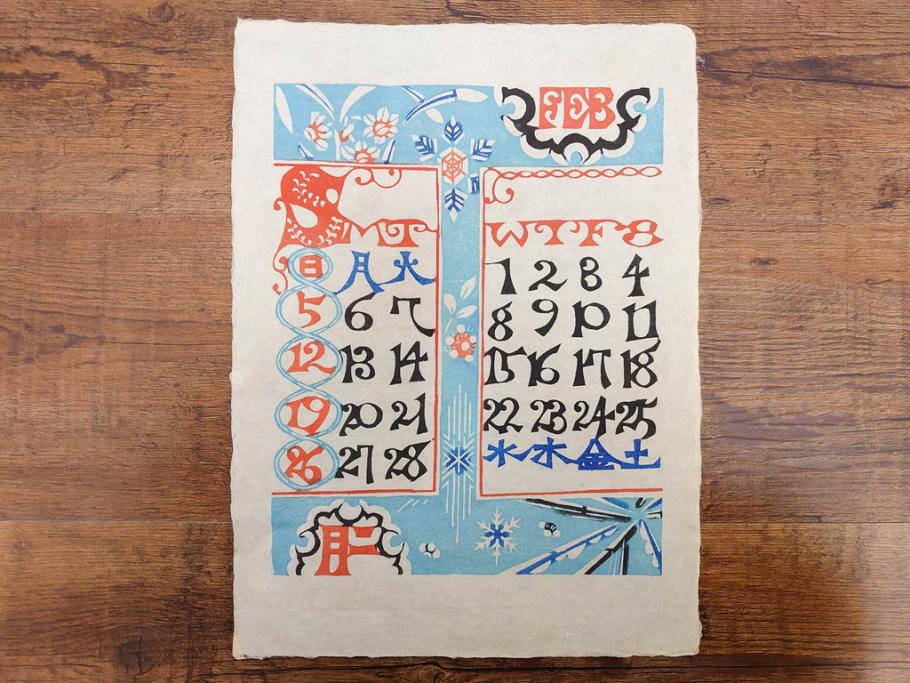 FEB
S M T W T F S
日 月 火 1 2 3 4
5 6 7 8 9 10 11
12 13 14 15 16 17 18
19 20 21 22 23 24 25
26 27 28 水 木 金 土